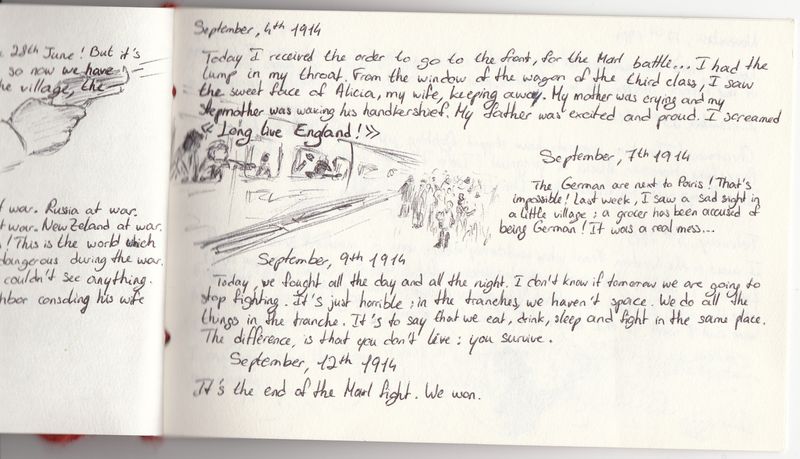 28th June! But it's
so now we have
the village, the
war. Russia at war.
t war. New Zeland at war.
! This is the world which
dangerous during the war.
couldn't see anything.
hbor consoling his wife
September, 4th 1914
Today I received the order to go to the front, for the Marl battle... I had the
lump in my throat. From the window of the wagon of the third class, I saw
the sweet face of Alicia, my wife, keeping away. My mother was crying and my
stepmother was waving his handkershief. My father was excited and proud. I screamed
« Long live England! »
September, 7th 1914
The German are next to Paris! That's
impossible! Last week, I saw a sad sight in
a little village; a grocer has been accused of
being German! It was a real mess...
September, 9th 1914
Today, we fought all the day and all the night. I don't know if tomorrow we are going to
stop fighting. It's just horrible; in the tranches, we haven't space. We do all the
things in the tranche. It's to say that we eat, drink, sleep and fight in the same place.
The difference, is that you don't live: you survive.
September, 12th 1914
It's the end of the Marl fight. We won.